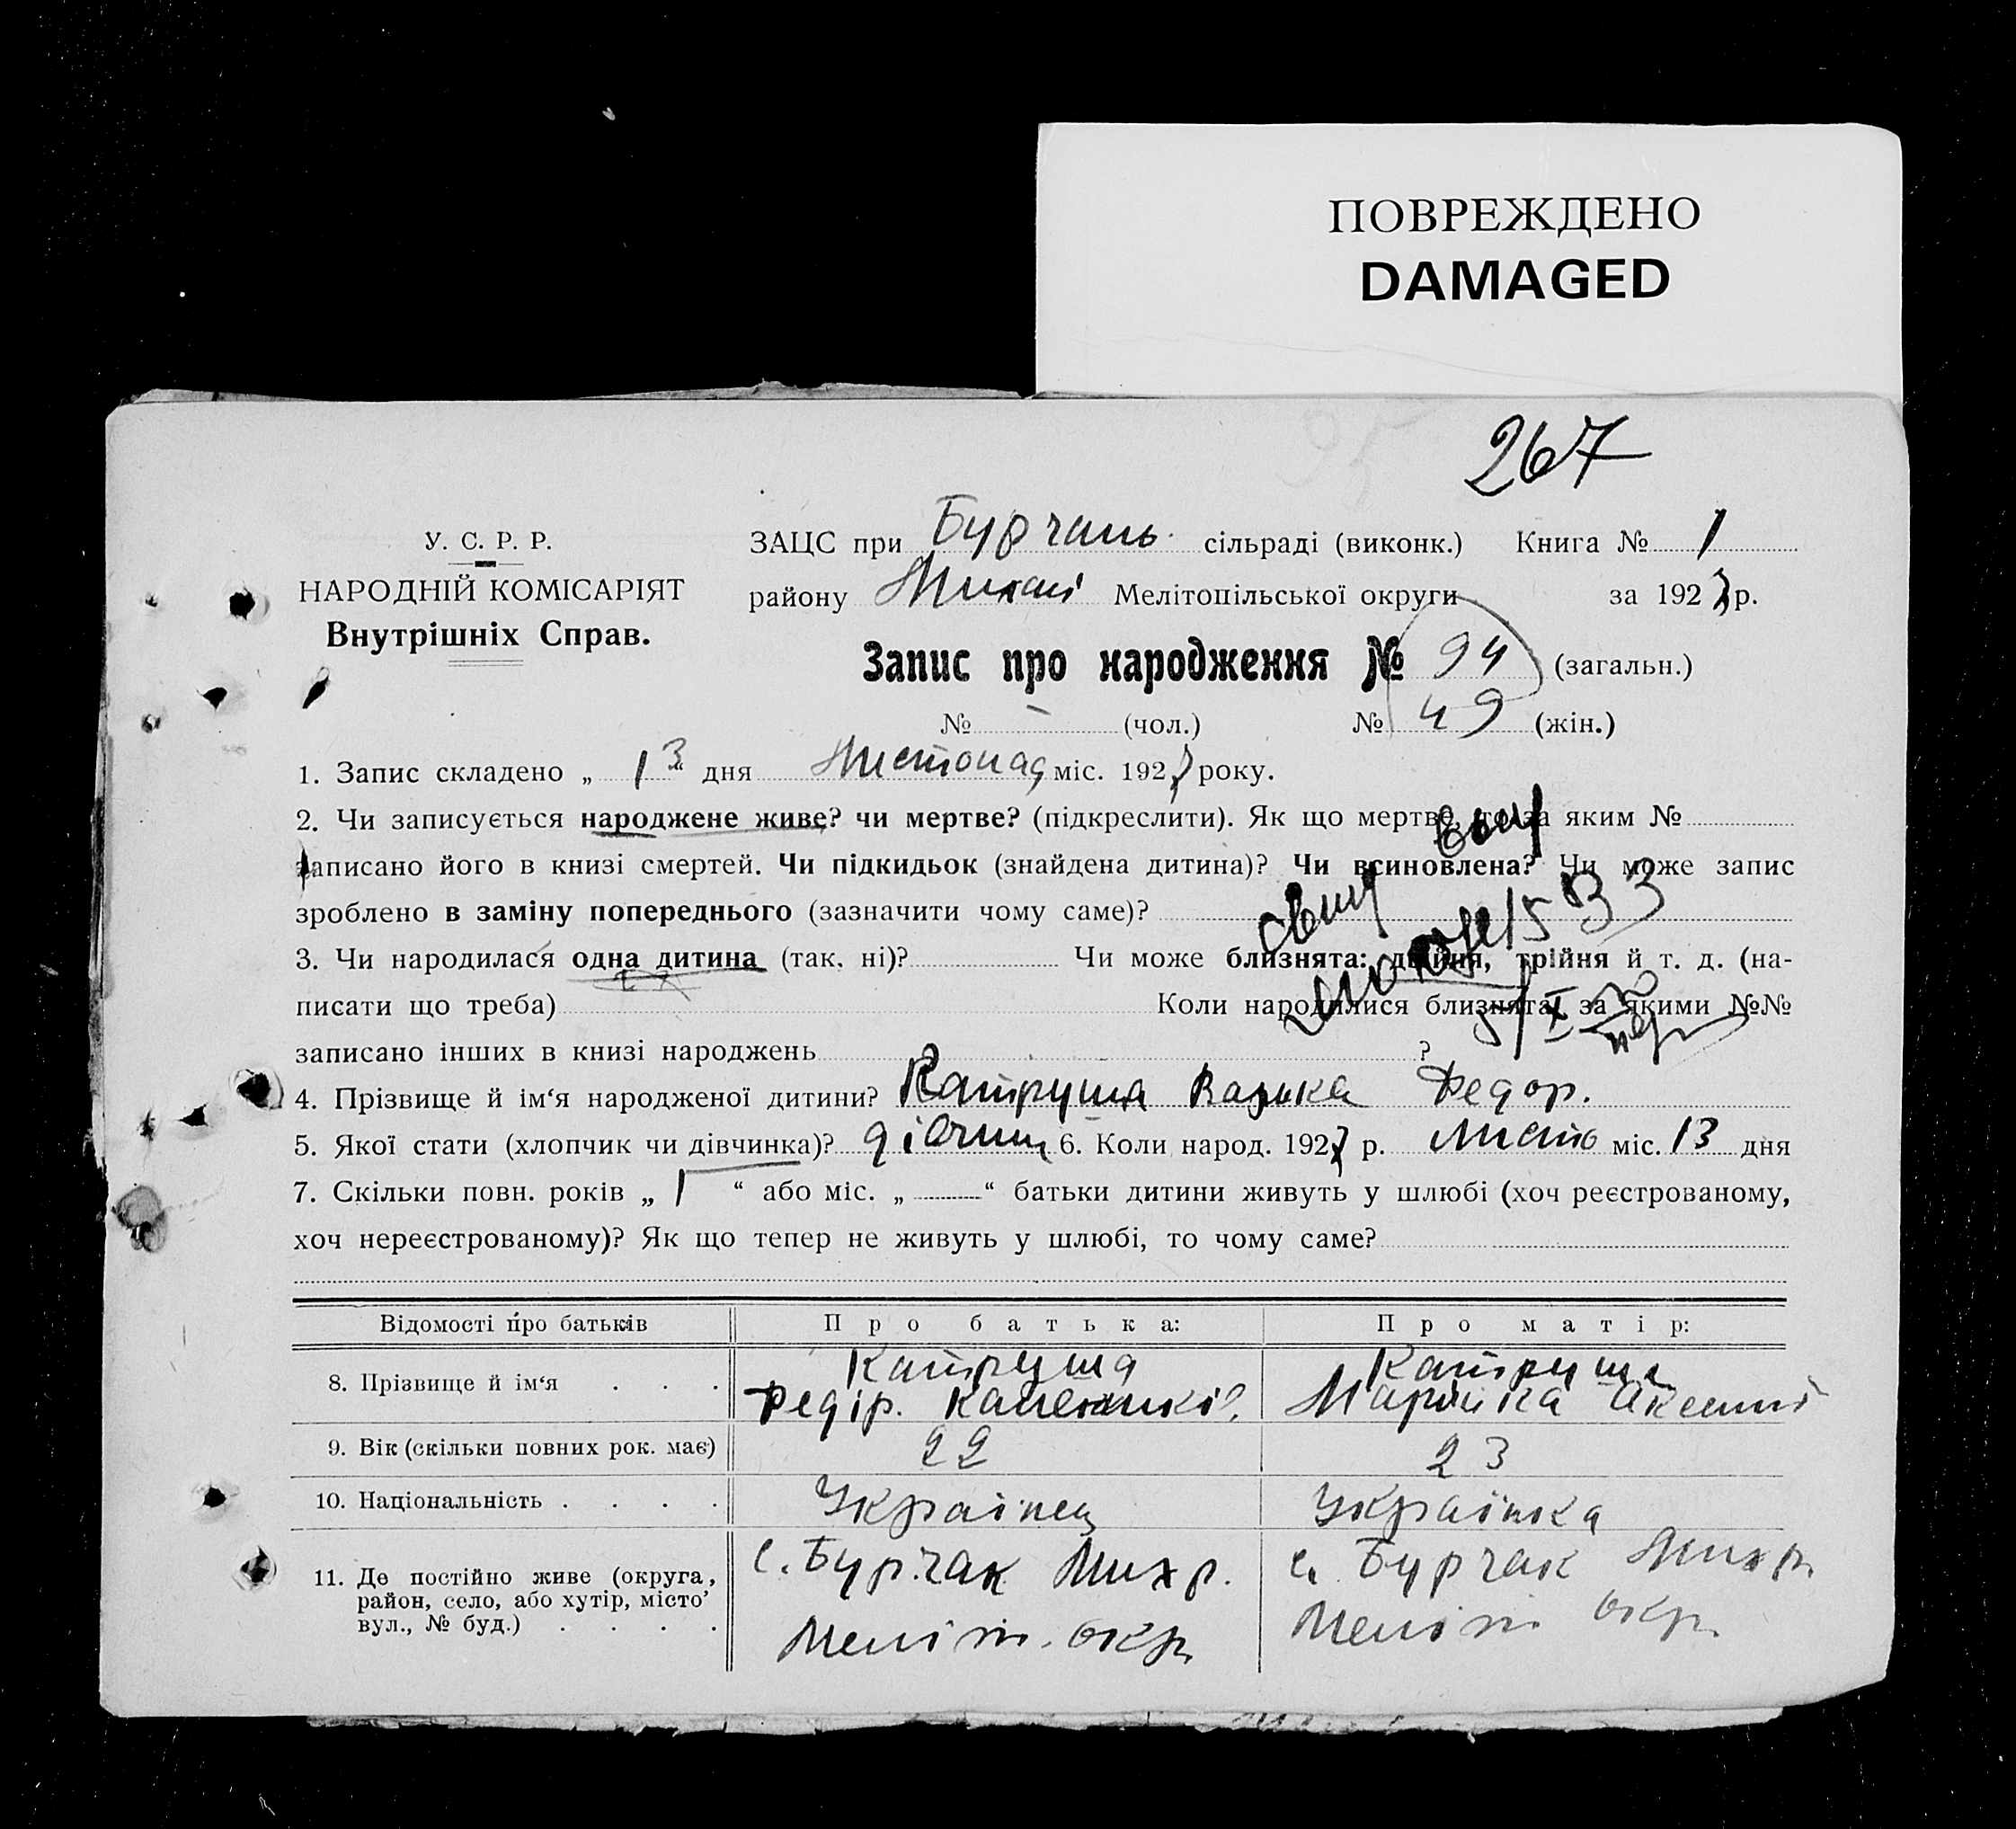 ПОВРЕЖДЕНО
DAMAGED
267
У. С. Р. Р.
НАРОДНІЙ КОМІСАРІЯТ
Внутрішніх Справ.
ЗАЦС при Бурчань. сільраді (виконк.) Книга № 1
району Михай Мелітопільської округи за 1927 р.
Запис про народження № 94 (загальн.)
№ – (чол.) № 49 (жін.)
1. Запис складено „ 13 “ дня Листопад міс. 1927 року.
2. Чи записується народжене живе? чи мертве? (підкреслити). Як що мертве, то за яким №
записано його в книзі смертей. Чи підкидьок (знайдена дитина)? Чи всиновлена? Чи може запис
зроблено в заміну попереднього (зазначити чому саме)?
3. Чи народилася одна дитина (так, ні)? Чи може близнята: двійня, трійня й т. д. (на-
писати що треба) Коли народилися близнята, за якими №№
записано інших в книзі народжень ?
4. Прізвище й ім‘я народженої дитини? Катруша Федор.
5. Якої стати (хлопчик чи дівчинка)? дівчина 6. Коли народ. 1927 р. Листо міс. 13 дня
7. Скільки повн. років „ 1 “ або міс. „ “ батьки дитини живуть у шлюбі (хоч реєстрованому,
хоч нереєстрованому)? Як що тепер не живуть у шлюбі, то чому саме?
Відомості про батьків Про батька: Про матір:
8. Прізвище й ім‘я . . . Катруша Катруша
Федір. Марійка
9. Вік (скільки повних рок. має) 22 23
10. Національність . . . . Українец Українка
11. Де постійно живе (округа, район, село, або хутір, місто, вул., № буд.) . . . . с. Бурчак Мих р. с. Бурчак Мих р.
Меліт. окр. Меліт окр.